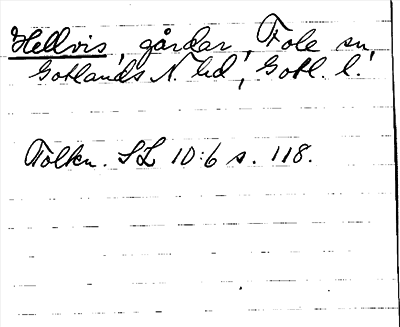 Hellvis, gårdar, Fole sn,
Gotlands N. hd, Gotl. l.
Tolkn. SL 10:6 s. 118.